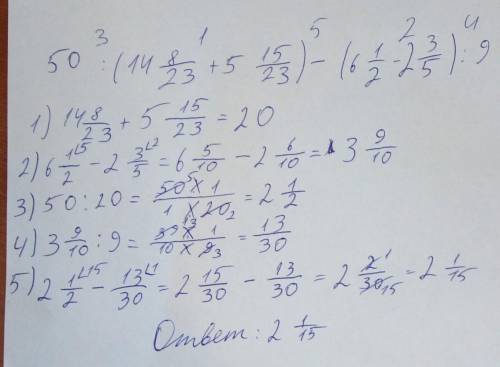 3 1 5 2 4
50 : (14 8/23 + 5 15/23) - (6 1/2 - 2 3/5) : 9
1) 14 8/23 + 5 15/23 = 20
2) 6 1/2 ⌊5 - 2 3/5 ⌊2 = 6 5/10 - 2 6/10 = 3 9/10
3) 50 : 20 = 50 5 × 1 / 1 × 20 2 = 2 1/2
4) 3 9/10 : 9 = 39 13 × 1 / 10 × 9 3 = 13/30
5) 2 1/2 ⌊15 - 13/30 ⌊1 = 2 15/30 - 13/30 = 2 2 1/30 15 = 2 1/15
Ответ: 2 1/15